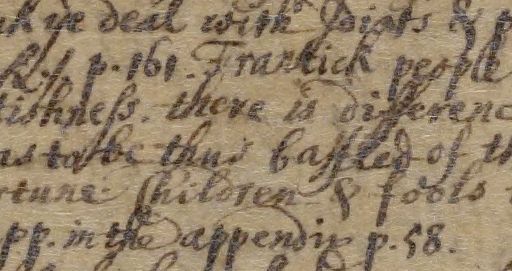 we deal with Idiots &
p. 161. Frantick people
tishness. there is differenc
as to be thus baffled of th
rtune. Children & fools
pp. in the appendix p. 58.